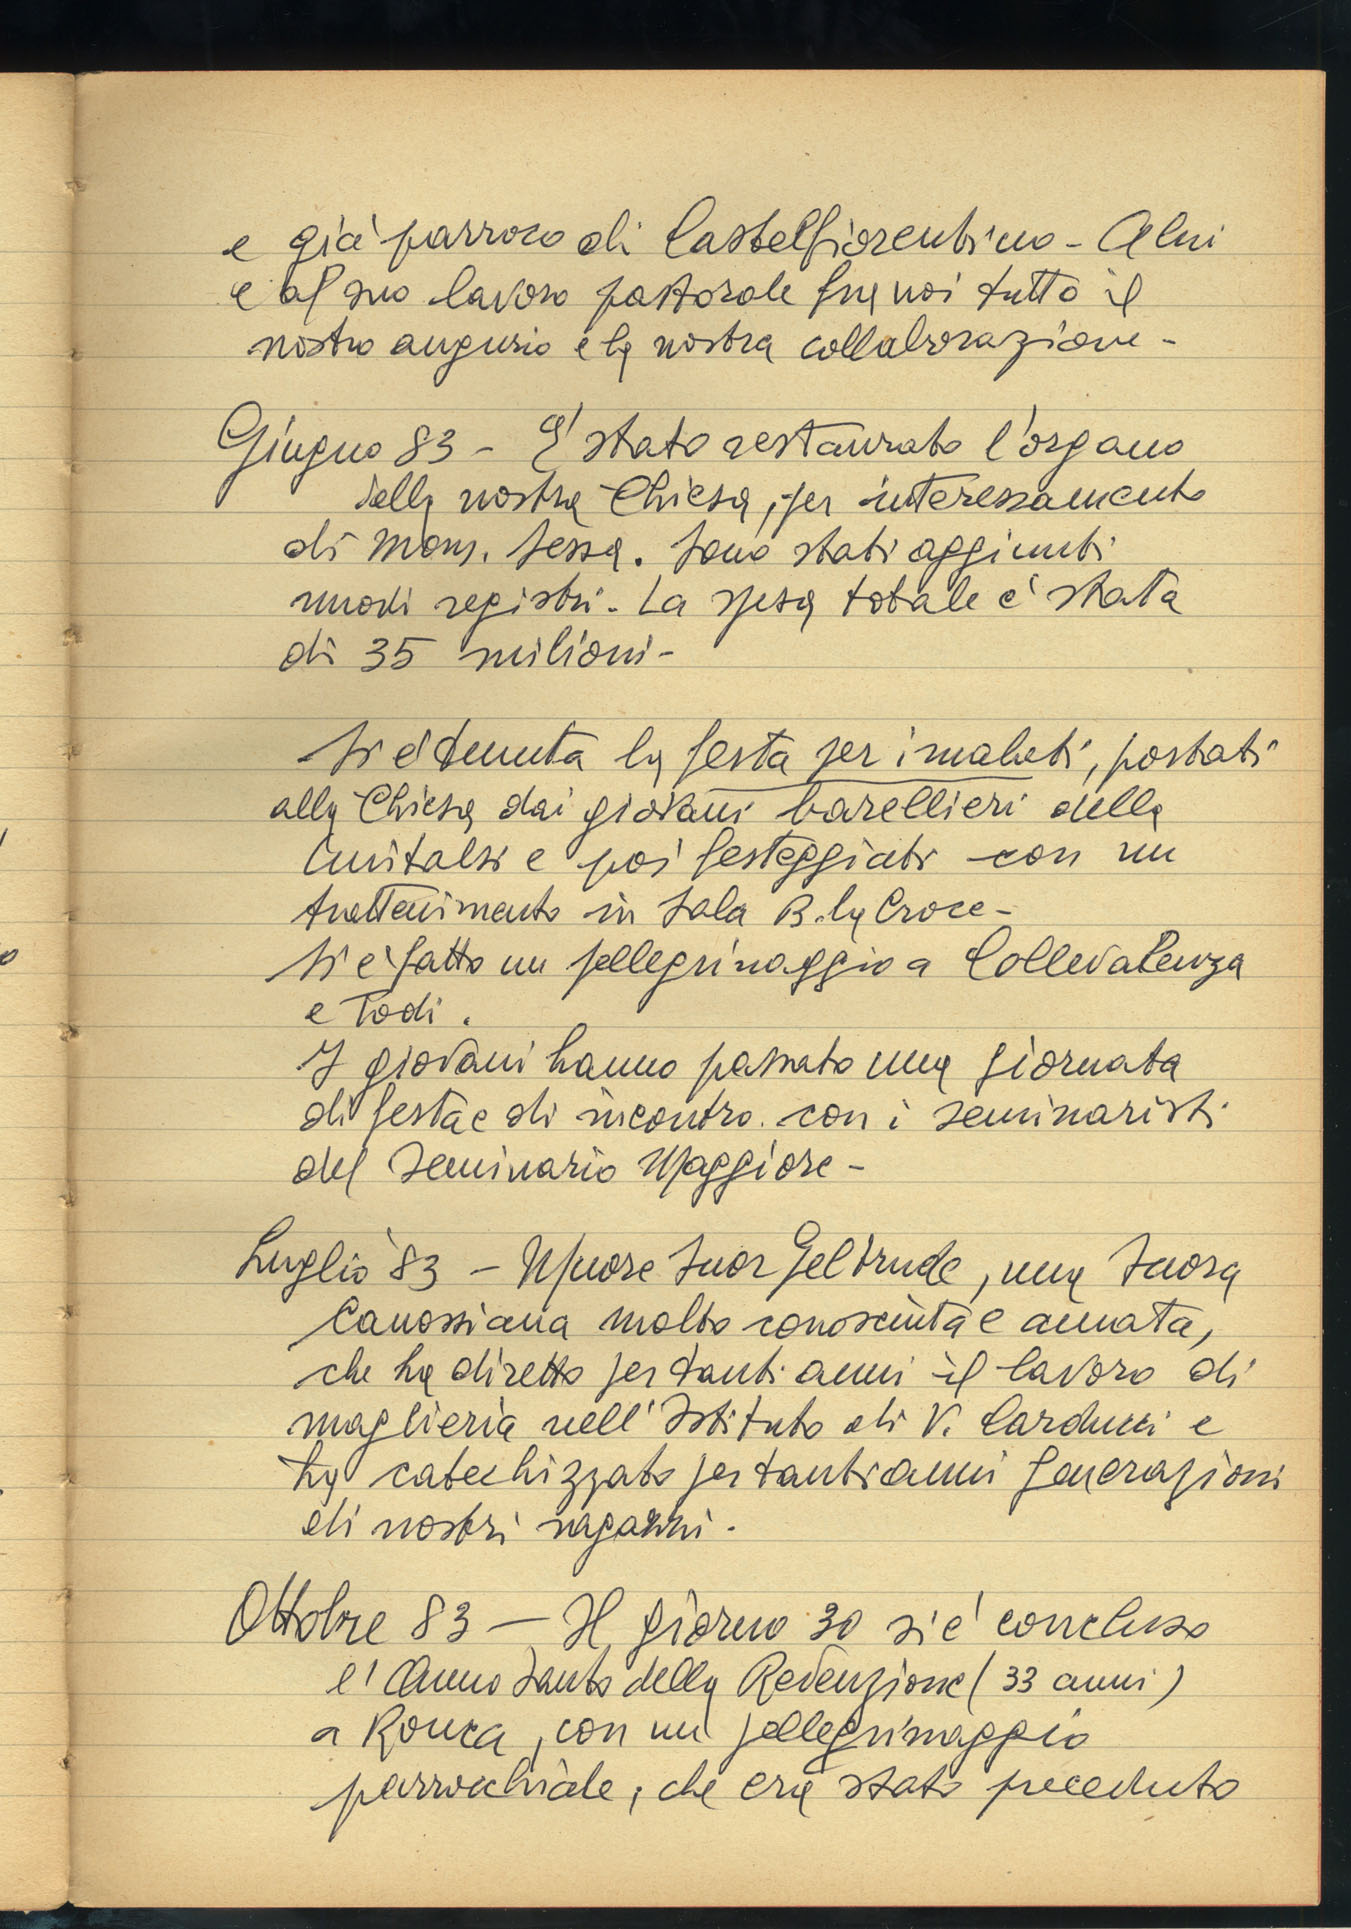 e già parroco di Castelfiorentino - A lui
e al suo lavoro pastorale fra noi tutto il
nostro augurio e la nostra collaborazione -
Giugno 83 - E' stato restaurato l'organo
della nostra Chiesa, per interessamento
di Mons. Sessa. Sono stati aggiunti
nuovi registri - La spesa totale è stata
di 35 milioni -
Si è tenuta la festa per i malati, portati
alla Chiesa dai giovani barellieri della
Unitalsi e poi festeggiati con un
trattenimento in Sala B. la Croce -
Si è fatto un pellegrinaggio a Collevalenza
e Todi.
I giovani hanno passato una giornata
di festa e di incontro con i seminaristi
del Seminario Maggiore -
Luglio 83 - Muore Suor Geltrude, una Suora
Canossiana molto conosciuta e amata,
che ha diretto per tanti anni il lavoro di
maglieria nell'Istituto di V. Carducci e
ha catechizzato per tanti anni generazioni
di nostri ragazzi.
Ottobre 83 - Il giorno 30 si è concluso
l'Anno Santo della Redenzione (33 anni)
a Roma, con un pellegrinaggio
parrocchiale, che era stato preceduto